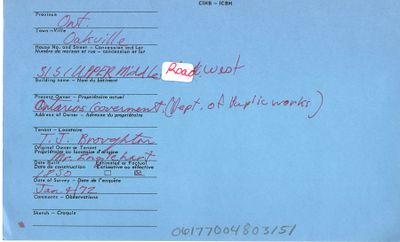 CIHB - ICBH
Province
Ont.
Town - Ville
Oakville
House No. and Street - Concession and Lot
Numéro de maison et rue - concession et lot
S/S/UPPER Middle Road, West
Building name - Nom du bâtiment
Present Owner - Propriétaire actuel
Ontario Government (Dept. of Public works)
Address of Owner - Adresse du propriétaire
Tenant - Locataire
T. J. Broughton
Original Owner or Tenant
Propriétaire ou locataire d'origine
Mr. Englehart
Date Built Estimated or Factual
Date de construction Estimative ou effective
1830
Date of Survey - Date de l'enquête
Jan 4/72
Comments - Observations
Sketch - Croquis
06177004803151